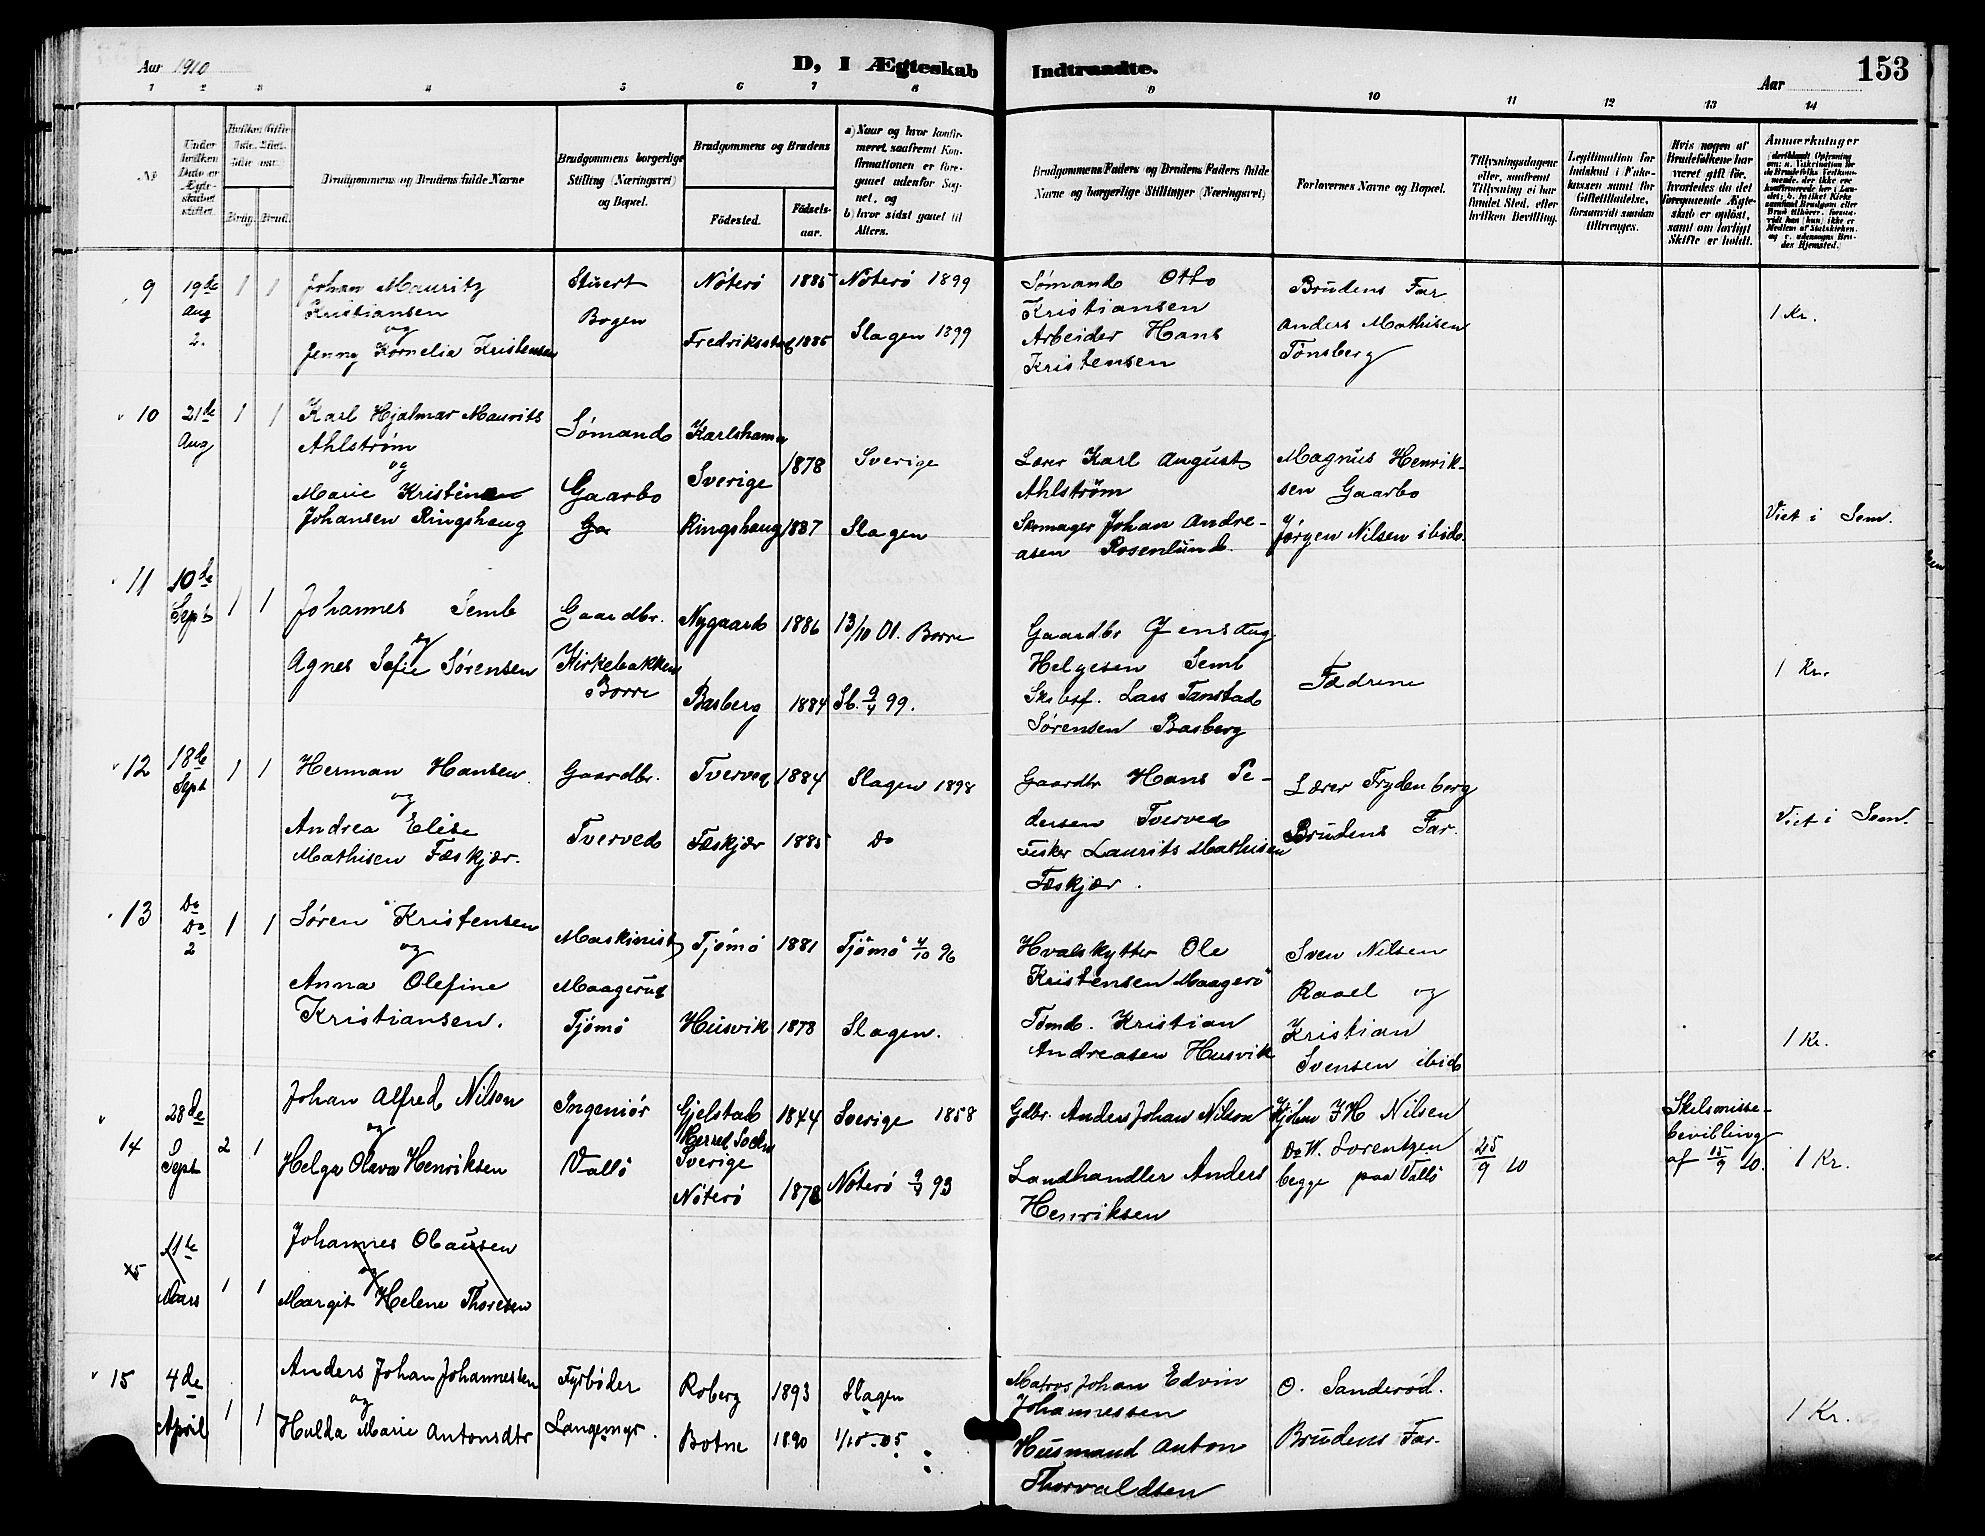 Aar 1910
D, I Ægteskab Indtraadte.
Aar
153
1 2 3 4 5 6 7 8 9 10 11 12 13 14
No
Under hvilken Dato er Ægteskabet stiftet.
Brudgommens og Brudens fulde Navne
Brudgommens borgerlige Stilling (Næringsvei) og Bopæl.
Brudgommens og Brudens
Fødested.
Fødselsaar.
a) Naar og hvor konfirmeret, saafremt Konfirmationen er foregaaet udenfor Sognet, og
b) hvor sidst gaaet til Alters.
Brudgommens Faders og Brudens Faders fulde Navne og borgerlige Stillinger (Næringsvei)
Forlovernes Navne og Bopæl.
Tillysningsdagene eller, saafremt Tillysning ei har fundet Sted, efter hvilken Bevilling.
Legitimation for Indskud i Enkekassen samt for Giftetilladelse, forsaavidt saadan tiltrænges.
Hvis nogen af Brudefolkene har været gift før, hvorledes da det foregaaende Ægteskab er opløst, samt om lovligt Skifte er holdt.
Anmærkninger
9 19de Aug 2. 1 1
Johan Mauritz
Kristiansen
og
Jenny Kornelia Kristensen
Stuert
Bogen
Nøterø 1885 Nøterø 1899
Fredriksstad 1885 Slagen 1899
Sømand Otto
Kristiansen
Arbeider Hans
Kristensen
Brudens Far
Anders Mathisen
Tønsberg
1 Kr.
10 21de Aug 1 1
Karl Hjalmar Maurits
Ahlstrøm
og
Marie Kristine
Johansen Ringshaug
Sømand
Gaarbo
Ga
Karlshamn
Sverige 1878 Sverige
Ringshaug 1887 Slagen
Lærer Karl August
Ahlstrøm
Skomager Johan Andre-
asen Rosenlund.
Magnus Henrik-
sen Gaarbo
Jørgen Nilsen ibid.
Viet i Sem.
11 10de Sept 1 1
Johannes Semb
og
Agnes Sofie Sørensen
Gaardbr.
Kirkebakken
Borre
Nygaard 1886 13/10 01. Borre
Basberg 1884 Sb. 9/4 99.
Gaardbr Jens Aug
Helgesen Semb
Skibsf. Lars Tanstad
Sørensen Basberg
Fædrene
1 Kr.
12 18de Sept 1 1
Herman Hansen
og
Andrea Elise
Mathisen Fæskjær.
Gaardbr.
Tverved
Tverved 1884 Slagen 1898
Fæskjær 1885 Do
Gaardbr Hans Pe-
dersen Tverved
Fisker Laurits Mathisen
Fæskjær.
Lærer Frydenberg
Brudens Far.
Viet i Sem.
13 Do Do 2 1 1
Søren Kristensen
og
Anna Olefine
Kristiansen.
Maskinist
Maagerud
Tjømø
Tjømø 1881 Tjømø 4/10 96
Husvik 1878 Slagen.
Hvalskytter Ole
Kristensen Maagerø
Tømd. Kristian
Andreasen Husvik
Sven Nilsen
Raael og
Kristian
Svensen ibid
1 Kr.
14 28de Sept 2 1
Johan Alfred Nilson
og
Helga Olava Henriksen
Ingeniør
Vallø
Gjelstad
Sverige 1844 Sverige 1858
Nøterø 1878 Nøterø 93
Gdbr. Anders Johan Nilson
Landhandler Anders
Henriksen
J H Nilsen
Do W. Lorentzen
begge paa Vallø
25/9 10
Skilsmisse-
bevilling
af 15/9 10.
1 Kr.
11te Mars 1 1
Johannes Olausen
og
Margit Helene Thoresen
15 4de April 1 1
Anders Johan Johannessen
og
Hulda Marie Antonsdtr
Fyrbøder
Langemyr.
Roberg 1893 Slagen
Botne 1890 1/10-05
Matros Johan Edvin
Johannessen
Husmand Anton
Thorvaldsen
O. Sanderød.
Brudens Far.
1 Kr.